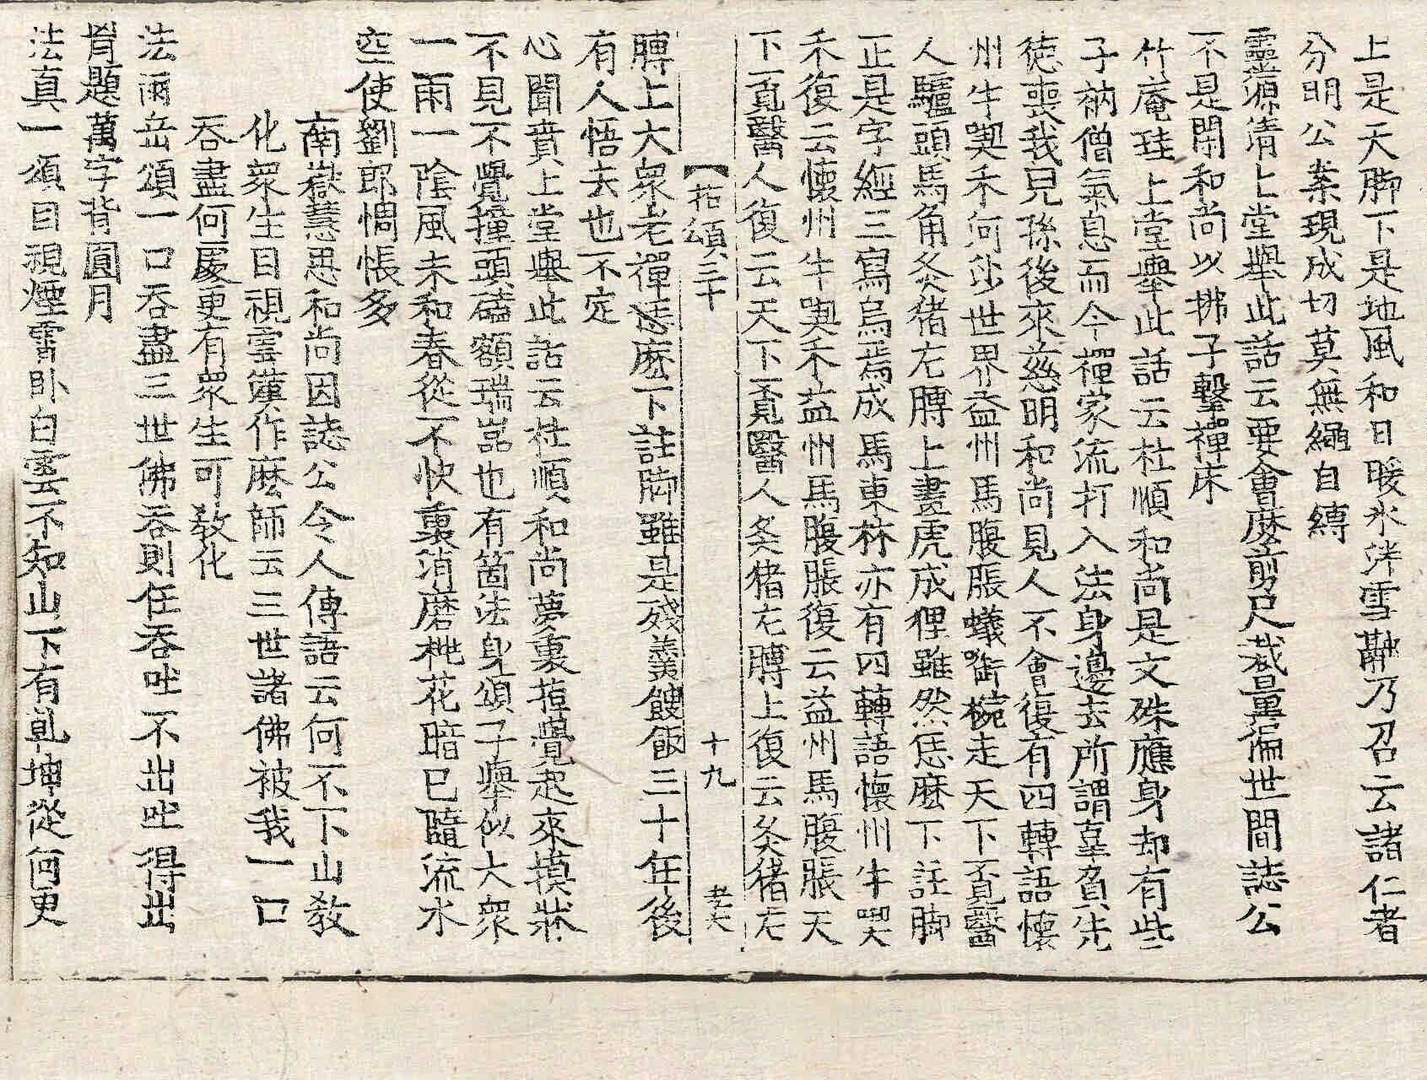 上是天脚下是地風和日暖氷泮雪融乃召云諸仁者
分明公案現成切莫無繩自縛
靈源淸上堂擧此話云要會麽剪尺裁量徧世間誌公
不是閑和尙以拂子擊禪床
竹菴珪上堂擧此話云杜順和尙是文殊應身却有些
子衲僧氣息而今禪家流打入法身邊去所謂辜負先
德喪我兒孫後來慈明和尙見人不會復有四轉語懷
州牛喫禾何沙世界益州馬腹脹蟻㘅椀走天下覔醫
人驢頭馬角灸猪左膊上畫虎成狸雖然恁麽下註脚
正是字經三寫烏焉成馬東林亦有四轉語懷州牛喫
禾復云懷州牛喫禾益州馬腹脹復云益州馬腹脹天
下覔醫人復云天下覔醫人灸猪左膊上復云灸猪左
【拈頌三十 十九 老大
膊上大衆老禪恁麽下註脚雖是殘羹餿飯三十年後
有人悟去也不定
心聞賁上堂擧此話云杜順和尙夢裏苴覺起來摸牀
不見不覺撞頭磕額瑞嵓也有箇法身頌子擧似大衆
一雨一陰風未和春從不快裏消磨桃花暗已隨流水
空使劉郞惆悵多
南嶽慧思和尙因誌公令人傳語云何不下山敎
化衆生目視雲漢作麽師云三世諸佛被我一口
吞盡何處更有衆生可敎化
法雨岳頌一口吞盡三世佛吞則任吞吐不出吐得出
背題萬字背圓月
法眞一頌目視煙霄臥白雲不知山下有乾坤從何更